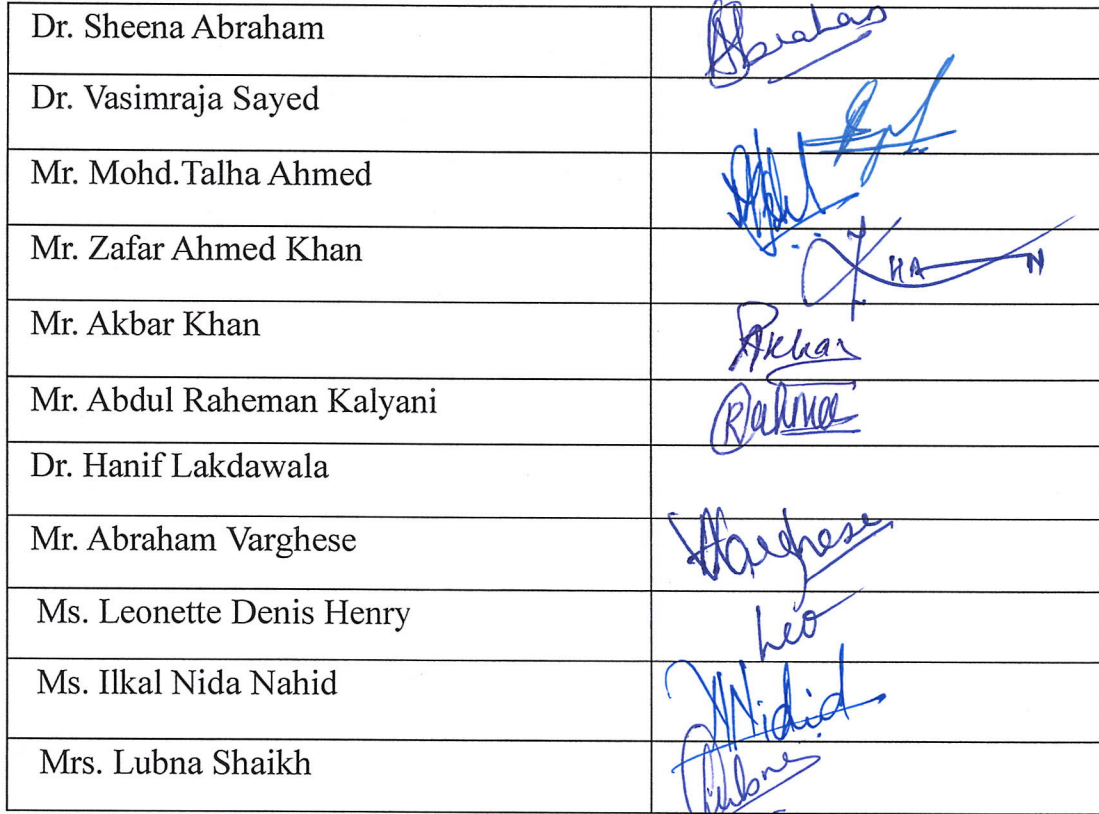 Dr. Sheena Abraham Abraham
Dr. Vasimraja Sayed
Mr. Mohd.Talha Ahmed
Mr. Zafar Ahmed Khan KHAN
Mr. Akbar Khan Akbar
Mr. Abdul Raheman Kalyani
Dr. Hanif Lakdawala
Mr. Abraham Varghese Varghese
Ms. Leonette Denis Henry Leo
Ms. Ilkal Nida Nahid
Mrs. Lubna Shaikh Lubna